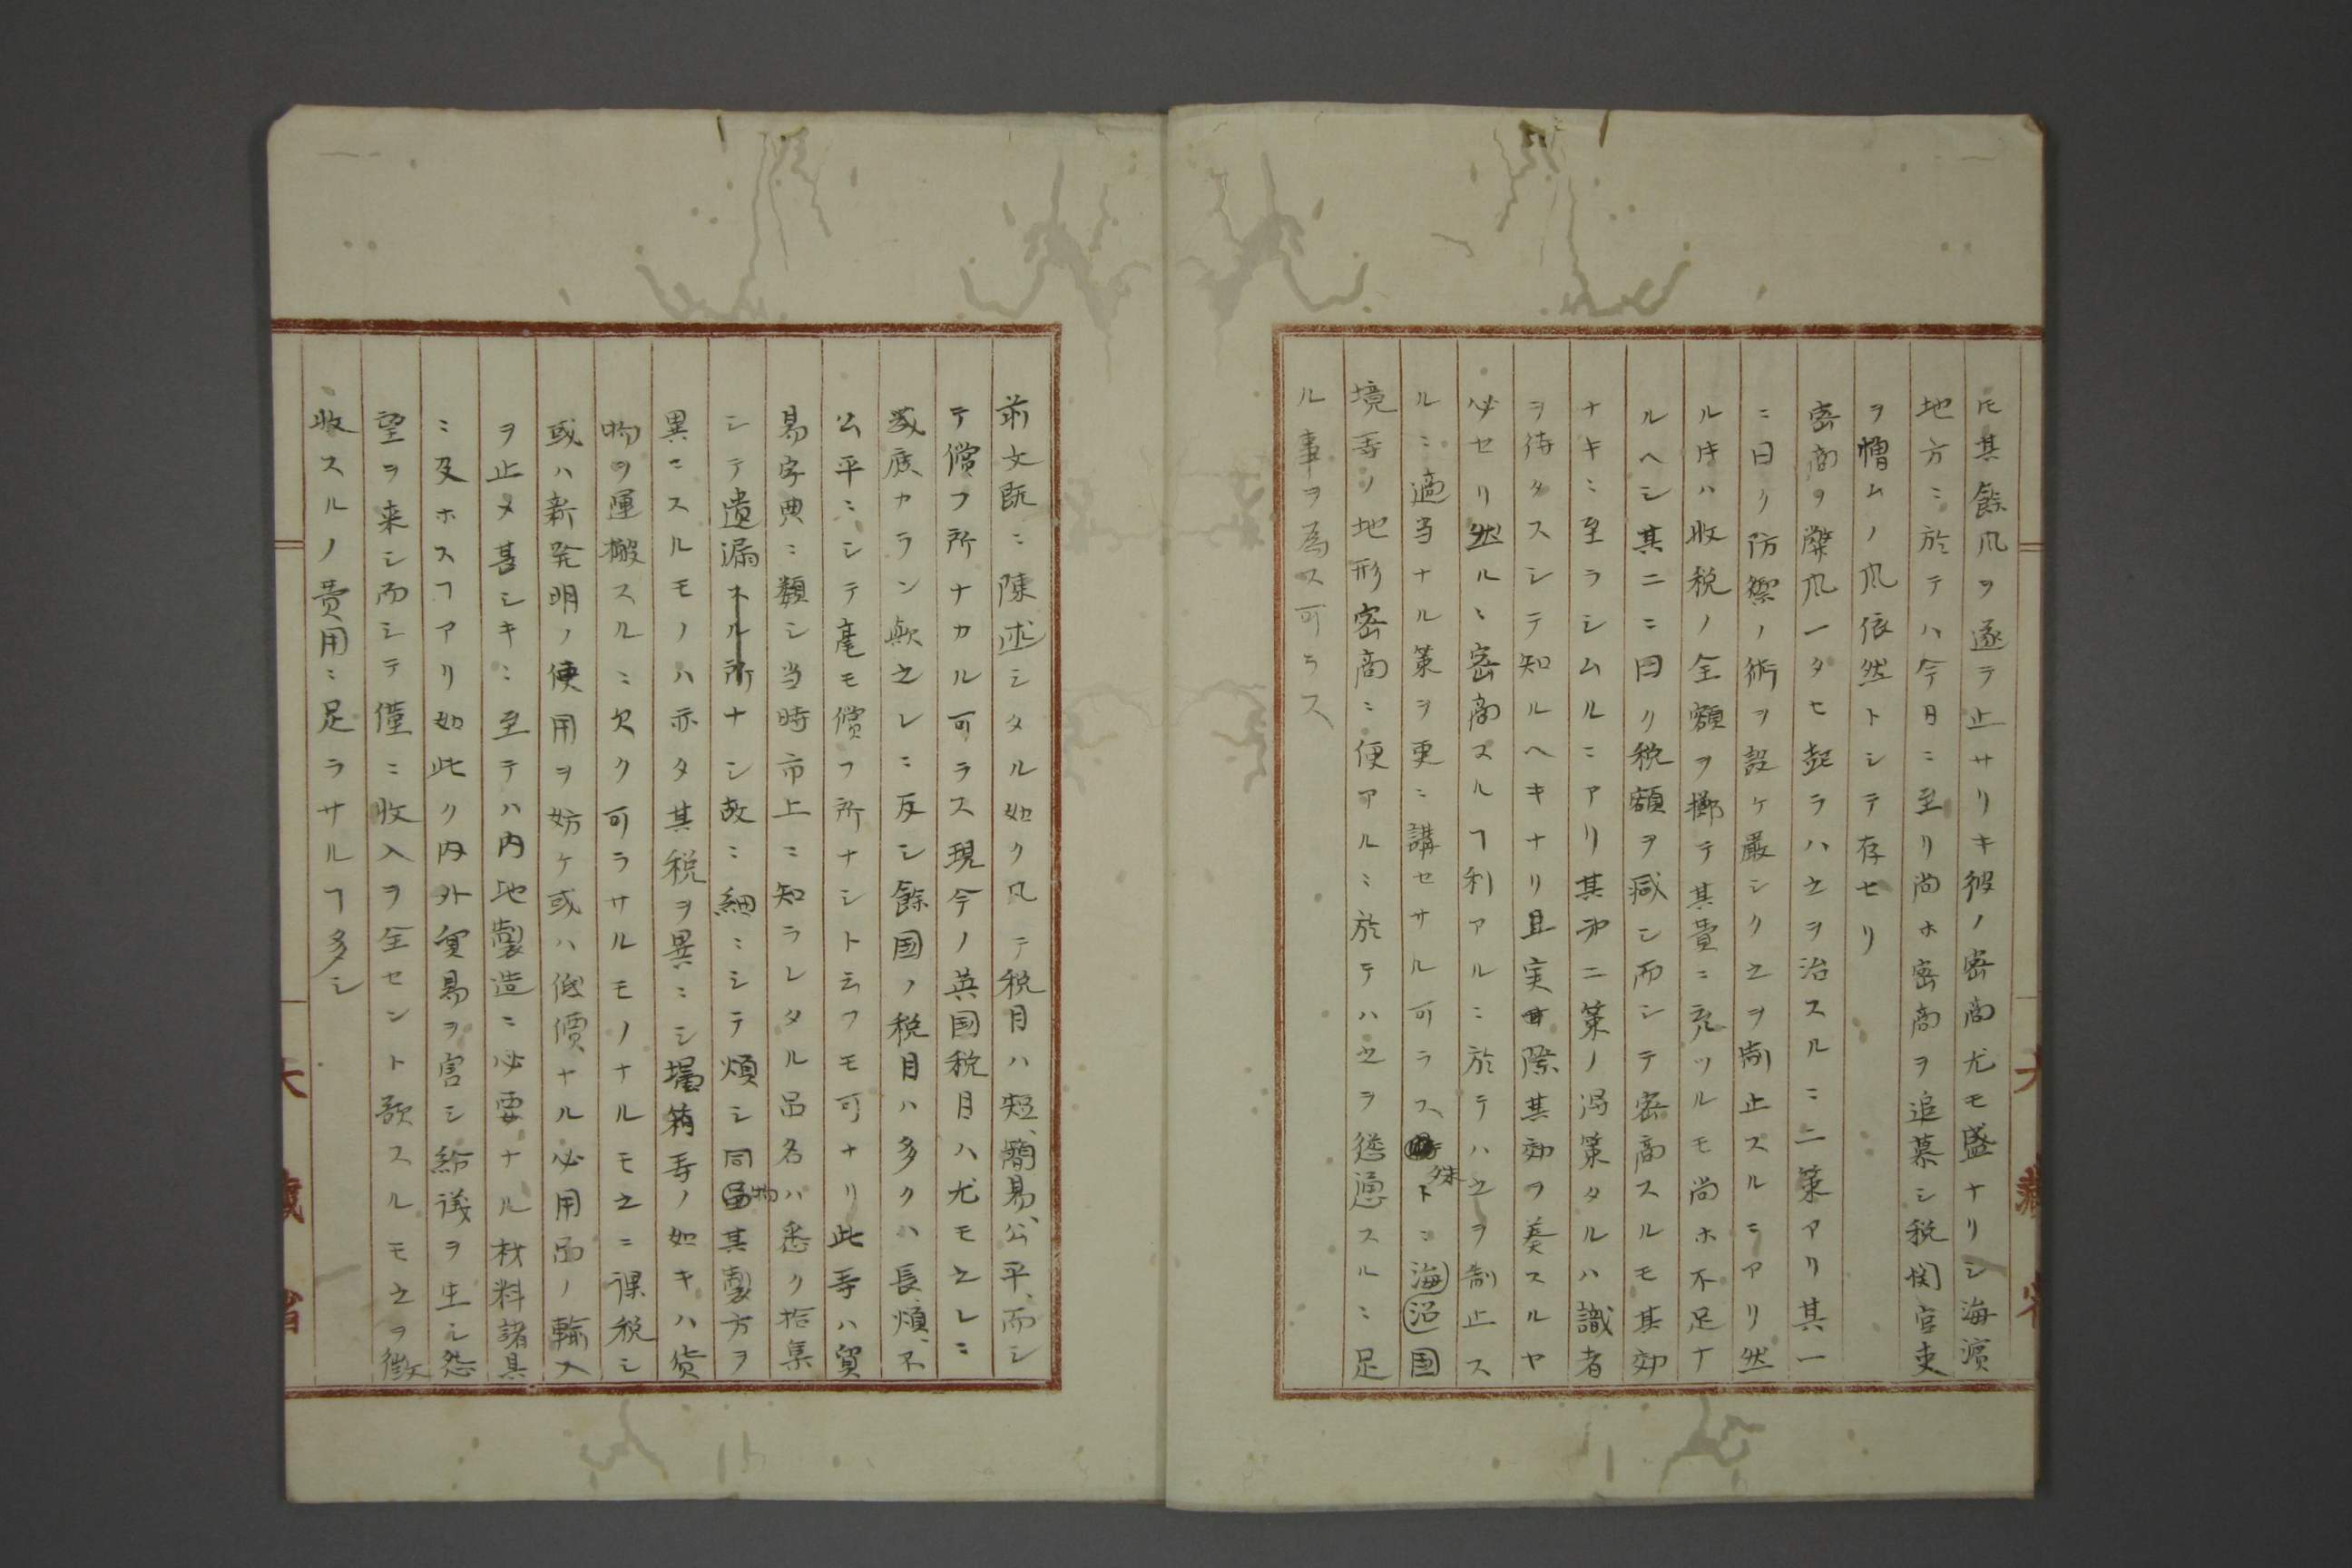 ﾓ其餘凨ヲ遂テ止サリキ彼ノ密商尤モ盛ナリシ海濱
地方ニ於テハ今日ニ至リ尚ホ密商ヲ追慕シ税関官吏
ヲ憎ムノ凨依然トシテ存セリ
密商ヲ弊凨一タヒ起ラハ之ヲ治スルニ二策アリ其一
ニ曰ク防禦ノ術ヲ設ケ嚴シク之ヲ制止スルニアリ然
ル片ハ收税ノ全額ヲ擲テ其費ニ充ツルモ尚ホ不足ナ
ルヘシ其二ニ曰ク税額ヲ減シ而シテ密商スルモ其効
ナキニ至ラシムルニアリ其第二策ノ得策タルハ識者
ヲ待タスシテ知ルヘキナリ且実際其効ヲ奏スルヤ
必セリ然ルニ密商スルヿ利アルニ於テハ之ヲ制止ス
ルニ適当ナル策ヲ更ニ講セサル可ラス殊ニ海沿国
境等ノ地形密商ニ便アルニ於テハ之ヲ慫慂スルニ足
ル事ヲ為ス可ラス
前文既ニ陳述シタル如ク凡テ税目ハ短、簡易、公平、而シ
テ償フ所ナカル可ラス現今ノ英国税目ハ尤モ之レニ
庶カラン歟之レニ反シ餘国ノ税目ハ多クハ長、煩、不
公平ニシテ毫モ償フ所ナシト云フモ可ナリ此等ハ貿
易字典ニ類シ当時市上ニ知ラレタル品名ハ悉ク拾集
シテ遺漏ナシ故ニ細ニシテ煩シ同物其製方ヲ
異ニスルモノハ亦タ其税ヲ異ニシ壜箱等ノ如キハ貨
物ヲ運搬スルニ欠ク可ラサルモノナルモ之ニ課税シ
或ハ新発明ノ使用ヲ妨ケ或ハ低價ナル必用品ノ輸入
ヲ止メ甚シキニ至テハ内地製造ニ必要ナル材料諸具
ニ及ホスヿアリ如此ク内外貿易ヲ害シ紛議ヲ生シ怨
望ヲ来シ而シテ僅ニ收入ヲ全セント欲スルモ之ヲ徴
收スルノ費用ニ足ラサルヿ多シ
大藏省